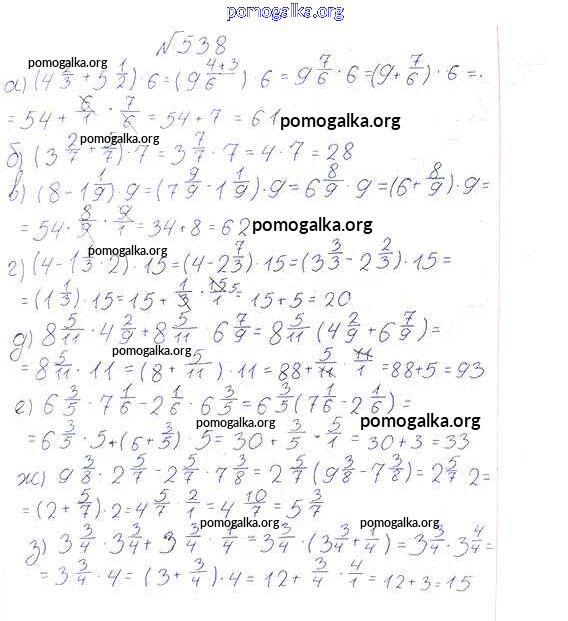 pomogalka.org
№538
pomogalka.org
а) (4 2/3 + 5 1/2) · 6 = (9 4+3/6) · 6 = 9 7/6 · 6 = (9 + 7/6) · 6 =
= 54 + 6/1 · 7/6 = 54 + 7 = 61 pomogalka.org
pomogalka.org
б) (3 2/7 + 5/7) · 7 = 3 7/7 · 7 = 4 · 7 = 28
в) (8 - 1 1/9) · 9 = (7 9/9 - 1 1/9) · 9 = 6 8/9 · 9 = (6 + 8/9) · 9 =
= 54 · 8/9 · 9/1 = 34 + 8 = 62 pomogalka.org
г) (4 - 1 1/3 · 2) · 15 = (4 - 2 7/3) · 15 = (3 3/3 - 2 2/3) · 15 =
= (1 1/3) · 15 = 15 + 1/3 · 15 5/1 = 15 + 5 = 20
pomogalka.org
д) 8 5/11 · 4 2/9 + 8 5/11 · 6 7/9 = 8 5/11 (4 2/9 + 6 7/9) =
pomogalka.org
= 8 5/11 · 11 = (8 + 5/11) · 11 = 88 + 5/11 · 11/1 = 88 + 5 = 93
е) 6 3/5 · 7 1/6 - 2 1/6 · 6 3/5 = 6 3/5 (7 1/6 - 2 1/6) =
pomogalka.org pomogalka.org
= 6 3/5 · 5 + (6 + 3/5) · 5 = 30 + 3/5 · 5/1 = 30 + 3 = 33
ж) 9 3/8 · 2 5/7 - 2 5/7 · 7 3/8 = 2 5/7 (9 3/8 - 7 3/8) = 2 5/7 2 =
= (2 + 5/7) · 2 = 4 5/7 · 2/1 = 4 10/7 = 5 3/7
pomogalka.org pomogalka.org
з) 3 3/4 · 3 3/4 + 3 3/4 · 1/4 = 3 3/4 · (3 3/4 + 1/4) = 3 3/4 · 3 4/4 =
= 3 3/4 · 4 = (3 + 3/4) · 4 = 12 + 3/4 · 4/1 = 12 + 3 = 15